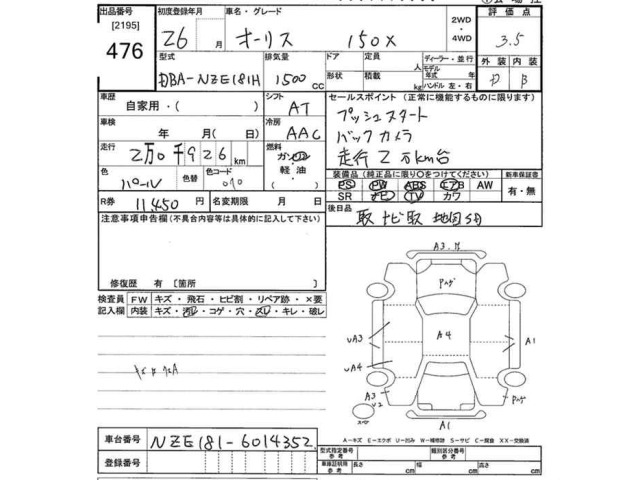 出品番号 初度登録年月 車名・グレード 2WD ・4WD 評価点
[2195]
476 26 月 オーリス 150X 3.5
型式 排気量 ドア 定員 ディーラー・並行 外装 内装
DBA-NZE181H 1500 CC 形状 人 積載 kg モデル年式 年 ハンドル 左・右 D B
車歴 シフト セールスポイント(正常に機能するものに限ります)
自家用・( ) AT プッシュスタート
車検 冷房 バックカメラ
年 月(日) AAC 走行2万km台
走行 燃料
2万0千926km ガソリン 軽油 装備品(純正品に限り○をつけてください) 新車保証書
色 色替 色コード PS PW ABS エアB AW 有・無
パール 070 SR ナビ TV カワ
R券 11,450 円 名変期限 月 日 後日品 取 ナビ取 地図SD
注意事項申告欄(不具合内容等は具体的に記入して下さい)
修復歴 有[箇所 ]
検査員 FW キズ・飛石・ヒビ割・リペア跡・×要
記入欄 内装 キズ・汚レ・コゲ・穴・スレ・キレ・破レ
A3
A4
UA3 A1
UA4
A3
U2
A1
A-キズ E-エクボ U-凹み W-補修跡 S-サビ C-腐食 XX-交換済
車台番号 NZE181-6014352
登録番号
型式指定番号 参考 類別区分番号
車庫証明用 参考 長さ cm 幅 cm 高さ cm